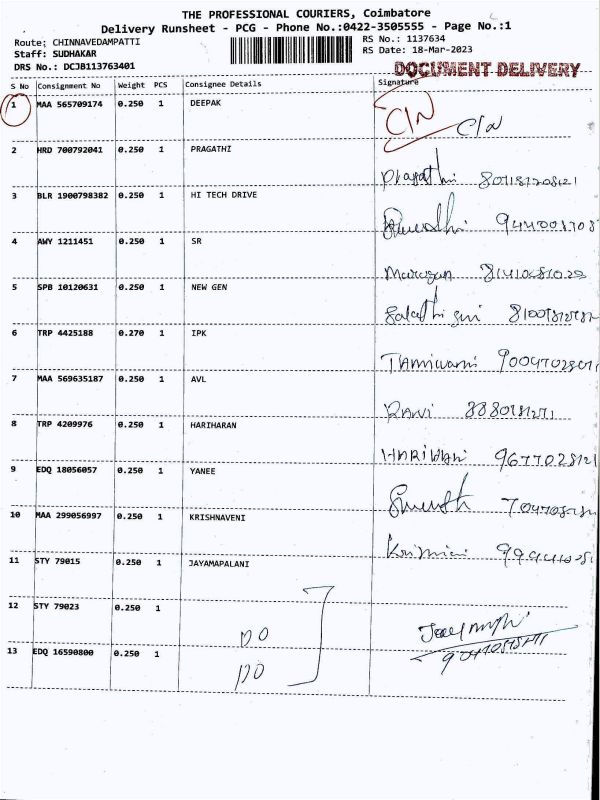 THE PROFESSIONAL COURIERS, Coimbatore
Delivery Runsheet - PCG - Phone No.:0422-3505555 - Page No.:1
Route: CHINNAVEDAMPATTI RS No.: 1137634
Staff: SUDHAKAR RS Date: 18-Mar-2023
DRS No.: DCJB113763401 DOCUMENT DELIVERY
S No Consignment No Weight PCS Consignee Details Signature
1 MAA 565709174 0.250 1 DEEPAK
2 HRD 700792041 0.250 1 PRAGATHI
Pragathi
3 BLR 1900798382 0.250 1 HI TECH DRIVE
4 AWY 1211451 0.250 1 SR
Murugan
5 SPB 10120631 0.250 1 NEW GEN
6 TRP 4425188 0.270 1 IPK
7 MAA 569635187 0.250 1 AVL
RAVI
8 TRP 4209976 0.250 1 HARIHARAN
9677028121
9 EDQ 18056057 0.250 1 YANEE
10 MAA 299056997 0.250 1 KRISHNAVENI
11 STY 79015 0.250 1 JAYAMAPALANI
12 STY 79023 0.250 1
DO
13 EDQ 16590800 0.250 1
DO